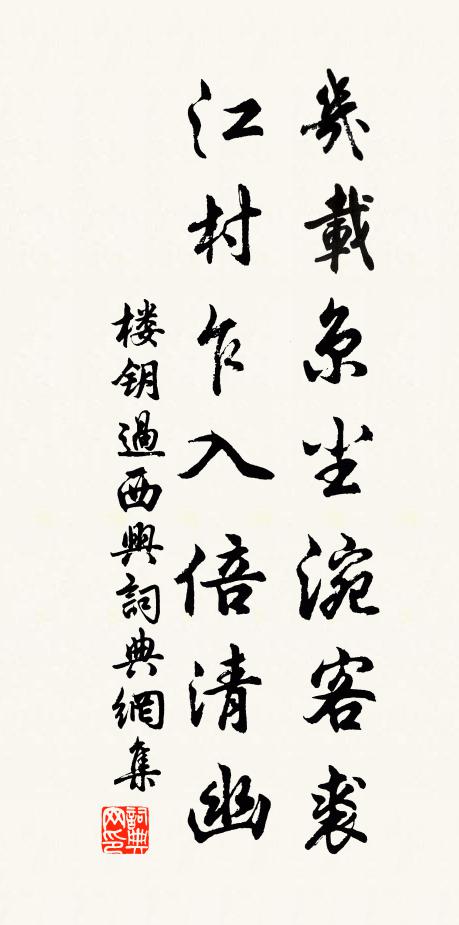 幾載京尘涴客裘
江村乍入倍清幽
楼钥過西興詞典網集
詞典网印